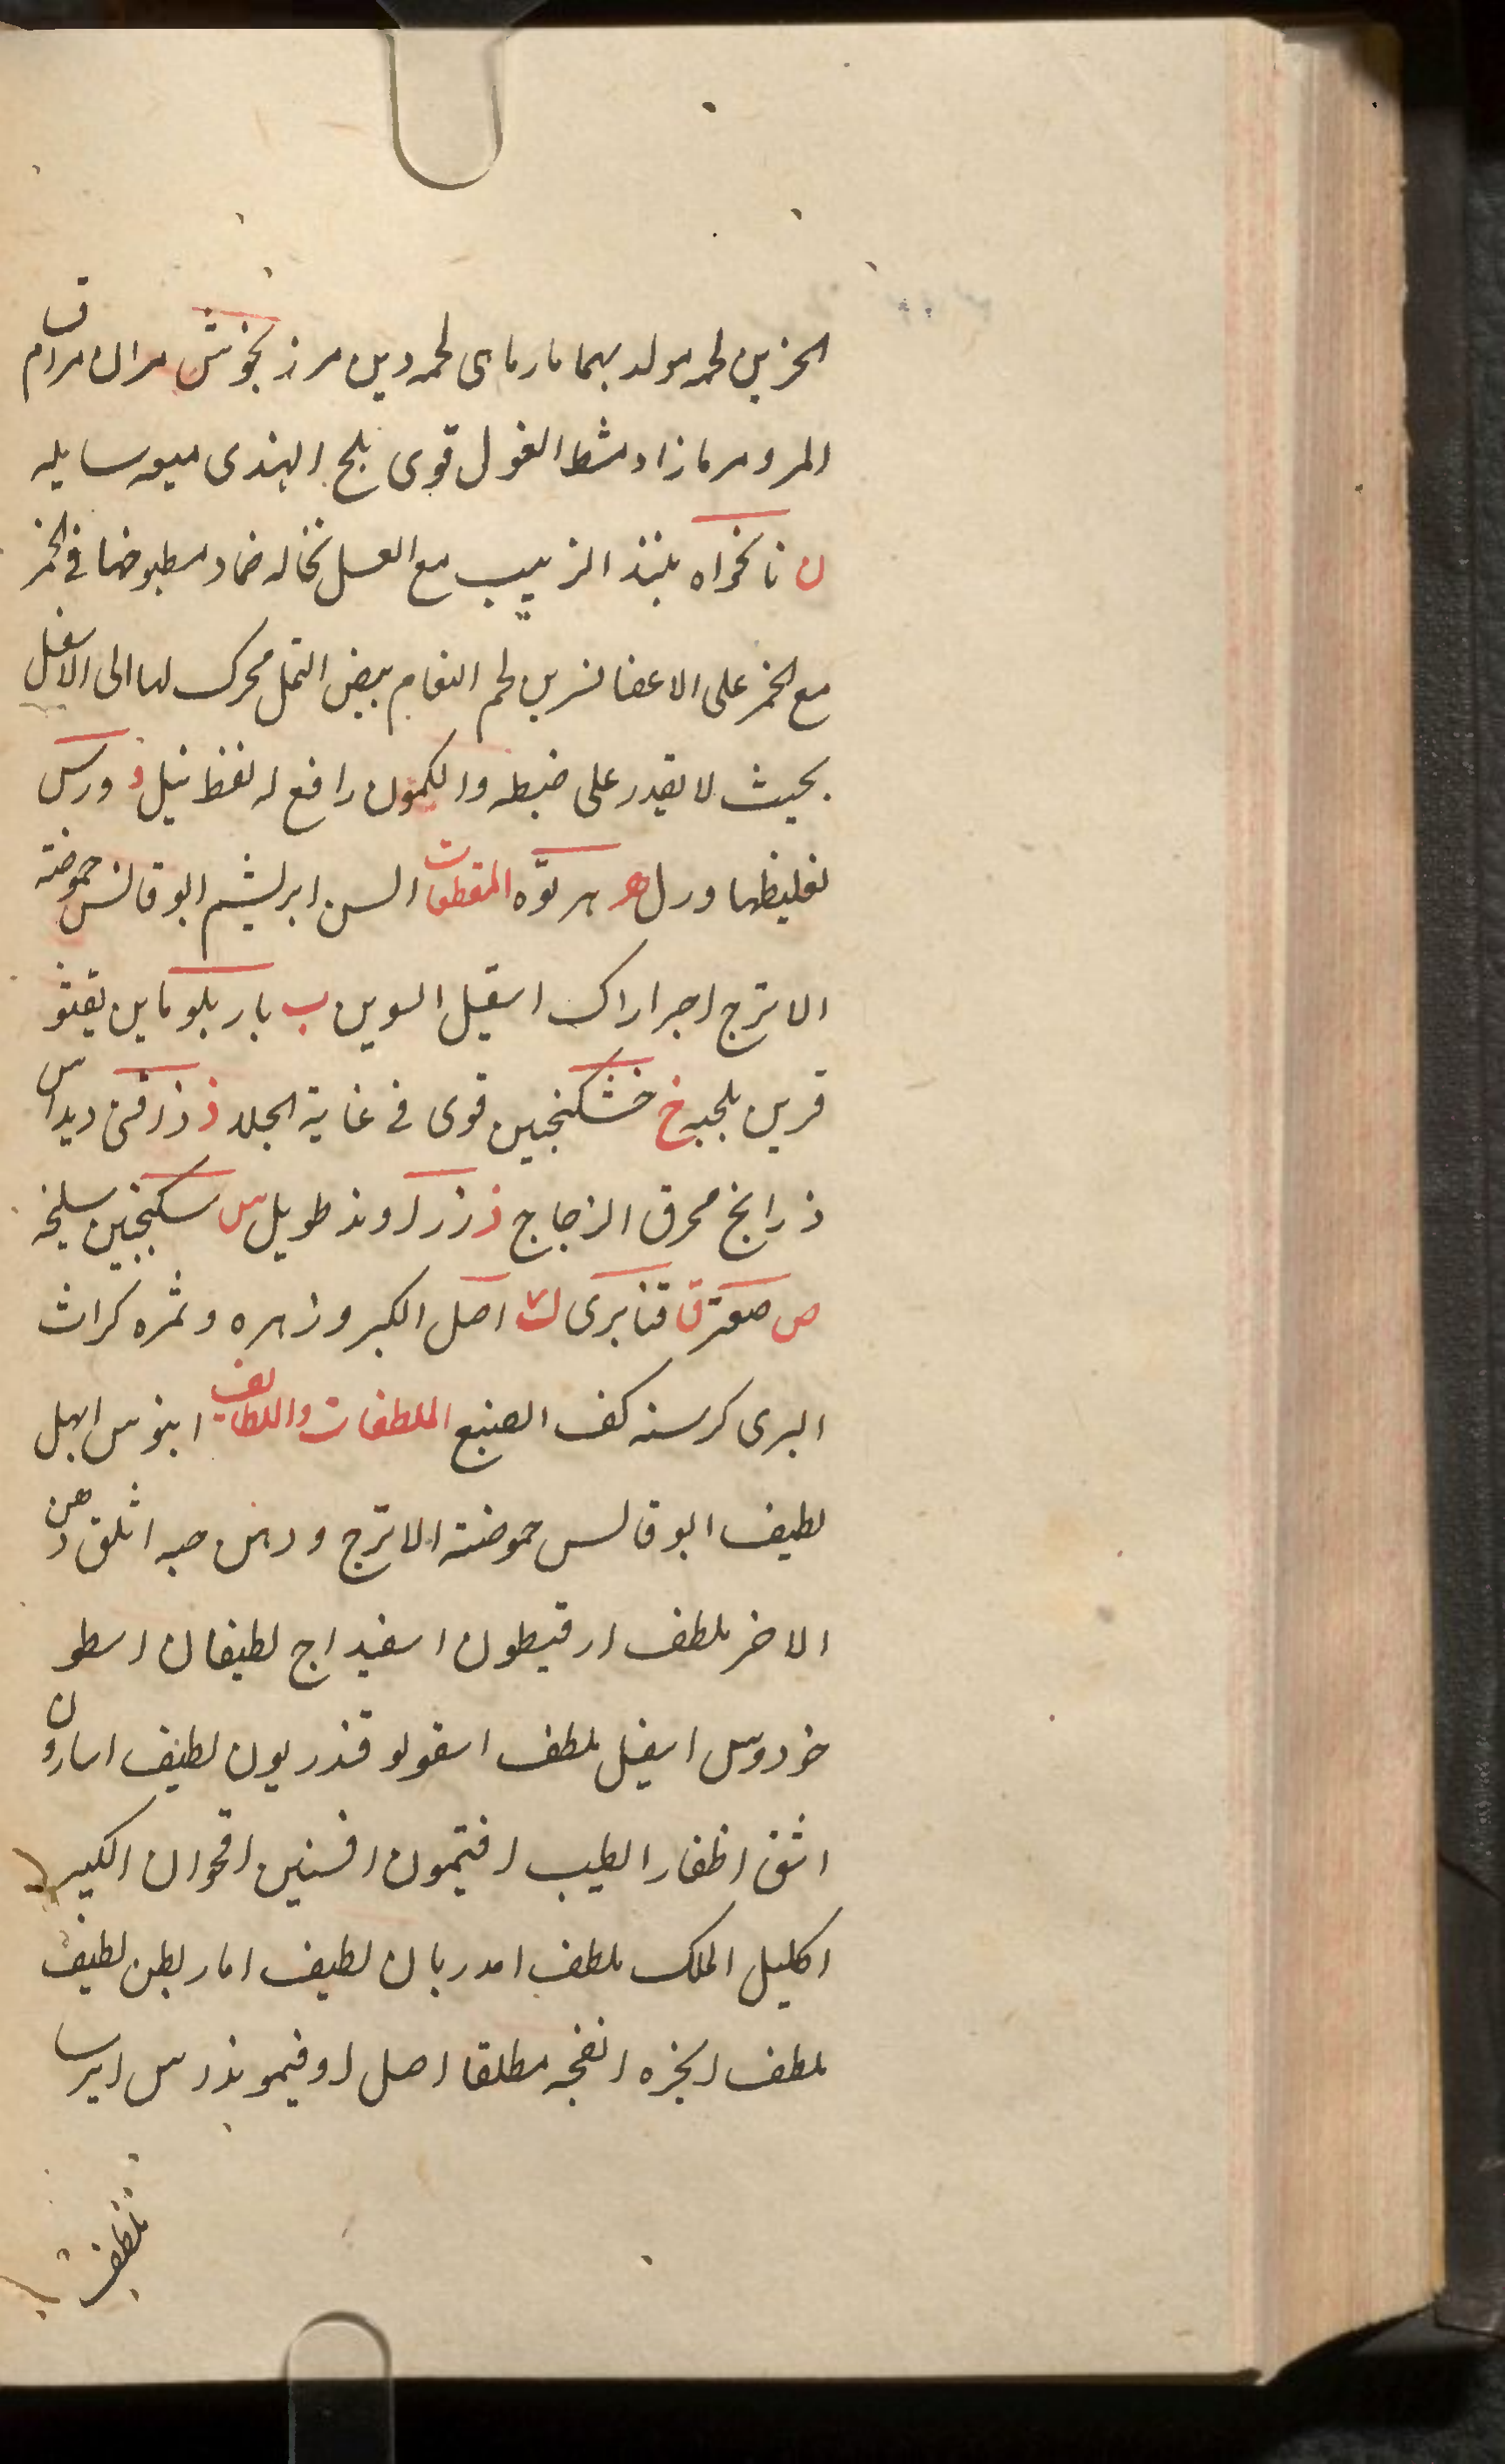 الحزین لحمه مولد بهما مارمای لحمه دین مرزنجوش مران مرام
المر و مر مازاد مشط الغول قوی بلح الهندی میعه سایله
ن نانخواه بنبذ الزبیب مع العسل نخاله ضماد مطبوخا فی الخمر
مع الخمر علی الاعضا نسرین لحم النعام بیض النمل محرک لها الی الاسفل
بحیث لا یقدر علی ضبطه والکمون رافع له نفط نیل و ورس
لغلیظها ورل هـ هرنوه المقطعات السن ابریشم ابوقالس حموضة
الاترج اجراراک اسقیل السوین ب باربلوماین یقثو
قریس بلجیه خ خشکنجبین قوی فی غایة الجلاء ذ ذرافنی دیداس
ذرایخ محرق الزجاج ز زراوند طویل س سکنجبین سلیخه
ص صعتر ق قنابری ک اصل الکبر وزهره وثمره کراث
البری کرسنه کف الضبع الملطفات واللطایف ابنوس ابهل
لطیف ابوقالس حموضة الاترج ودهن حبه اثلق دهن
الاخر ملطف ارقیطون اسفیداج لطیفان اسطو
خودوس اسقیل ملطف اسقولوقندریون لطیف اسارون
اشق اظفار الطیب افتیمون افسنتین اقحوان الکبیر
اکلیل الملک ملطف امدریان لطیف اماریطن لطیف
ملطف انجره انفحه مطلقا اصل اوفیمویذرس ایرسا
ملطف